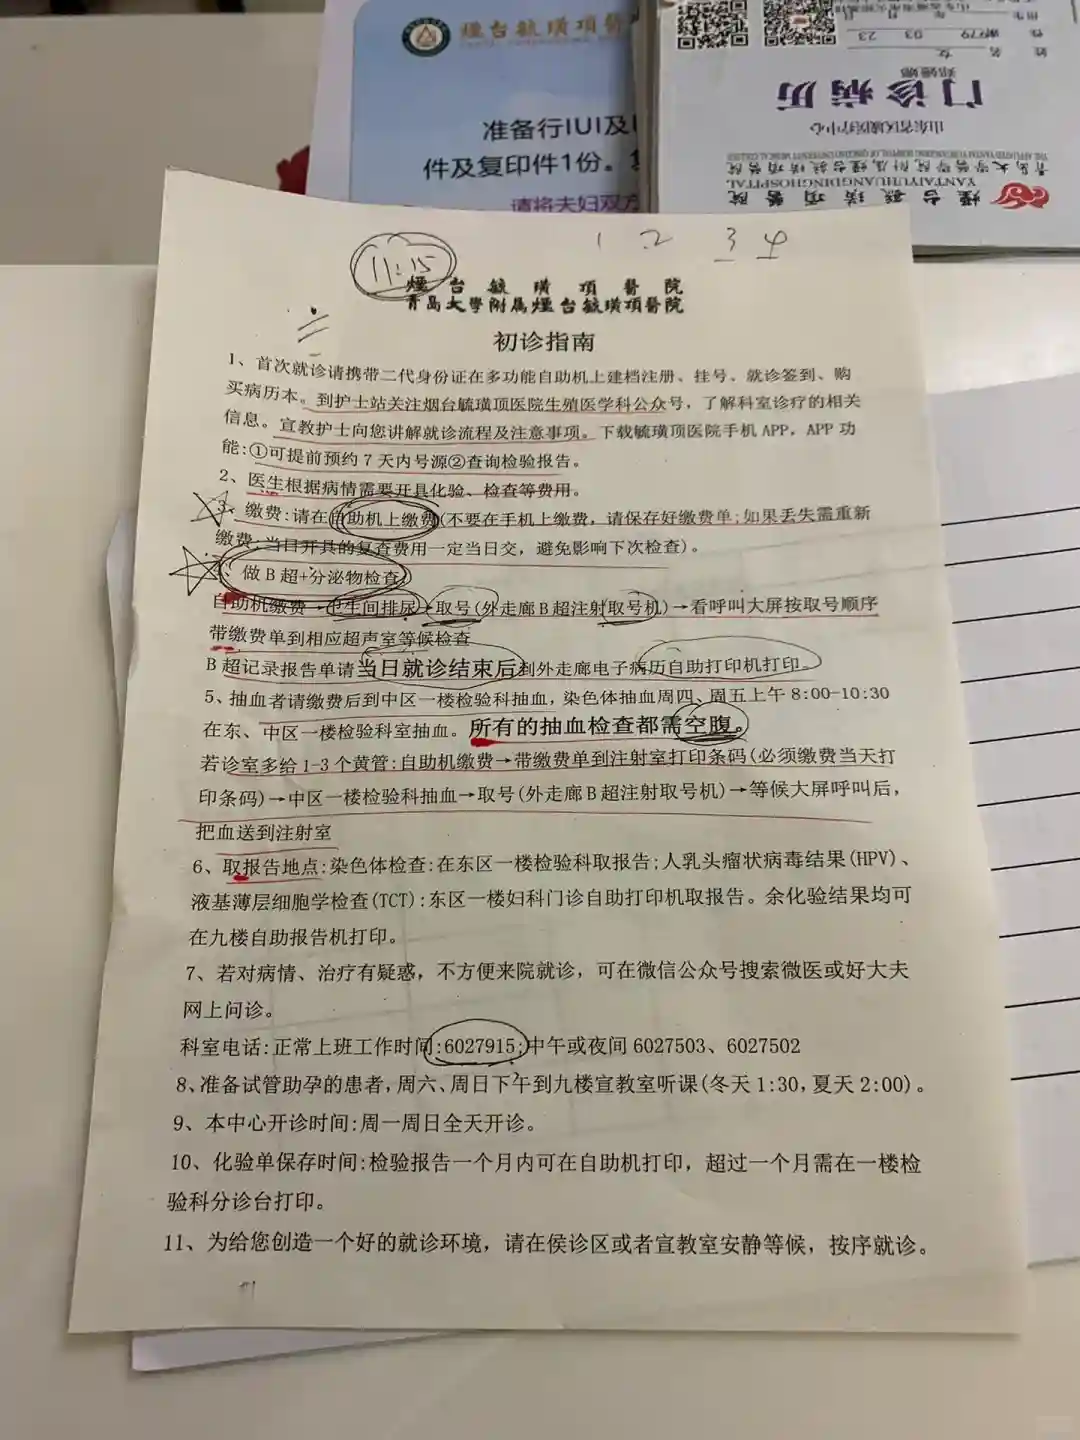 煙台毓璜項醫院
准备行IUI及
件及复印件1份。
请将夫妇双方
门诊病历
山东省区域医疗中心
YANTAIYUHUANGDINGHOSPITAL
煙台毓璜項醫院
1 2 3 4
11:15
煙台毓璜項醫院
青島大學附属煙台毓璜項醫院
初诊指南
1、首次就诊请携带二代身份证在多功能自助机上建档注册、挂号、就诊签到、购
买病历本。到护士站关注烟台毓璜顶医院生殖医学科公众号，了解科室诊疗的相关
信息。宣教护士向您讲解就诊流程及注意事项。下载毓璜顶医院手机 APP，APP 功
能:①可提前预约 7 天内号源②查询检验报告。
2、医生根据病情需要开具化验、检查等费用。
3、缴费:请在自助机上缴费(不要在手机上缴费，请保存好缴费单;如果丢失需重新
缴费;当日开具的复查费用一定当日交，避免影响下次检查)。
、做 B 超+分泌物检查
自助机缴费→卫生间排尿→取号(外走廊 B 超注射取号机)→看呼叫大屏按取号顺序
带缴费单到相应超声室等候检查
B 超记录报告单请当日就诊结束后到外走廊电子病历自助打印机打印。
5、抽血者请缴费后到中区一楼检验科抽血，染色体抽血周四、周五上午 8:00-10:30
在东、中区一楼检验科室抽血。所有的抽血检查都需空腹。
若诊室多给 1-3 个黄管:自助机缴费→带缴费单到注射室打印条码(必须缴费当天打
印条码)→中区一楼检验科抽血→取号(外走廊 B 超注射取号机)→等候大屏呼叫后，
把血送到注射室
6、取报告地点:染色体检查:在东区一楼检验科取报告;人乳头瘤状病毒结果(HPV)、
液基薄层细胞学检查(TCT):东区一楼妇科门诊自助打印机取报告。余化验结果均可
在九楼自助报告机打印。
7、若对病情、治疗有疑惑，不方便来院就诊，可在微信公众号搜索微医或好大夫
网上问诊。
科室电话:正常上班工作时间:6027915;中午或夜间 6027503、6027502
8、准备试管助孕的患者,周六、周日下午到九楼宣教室听课(冬天 1:30,夏天 2:00)。
9、本中心开诊时间:周一周日全天开诊。
10、化验单保存时间:检验报告一个月内可在自助机打印，超过一个月需在一楼检
验科分诊台打印。
11、为给您创造一个好的就诊环境，请在侯诊区或者宣教室安静等候，按序就诊。